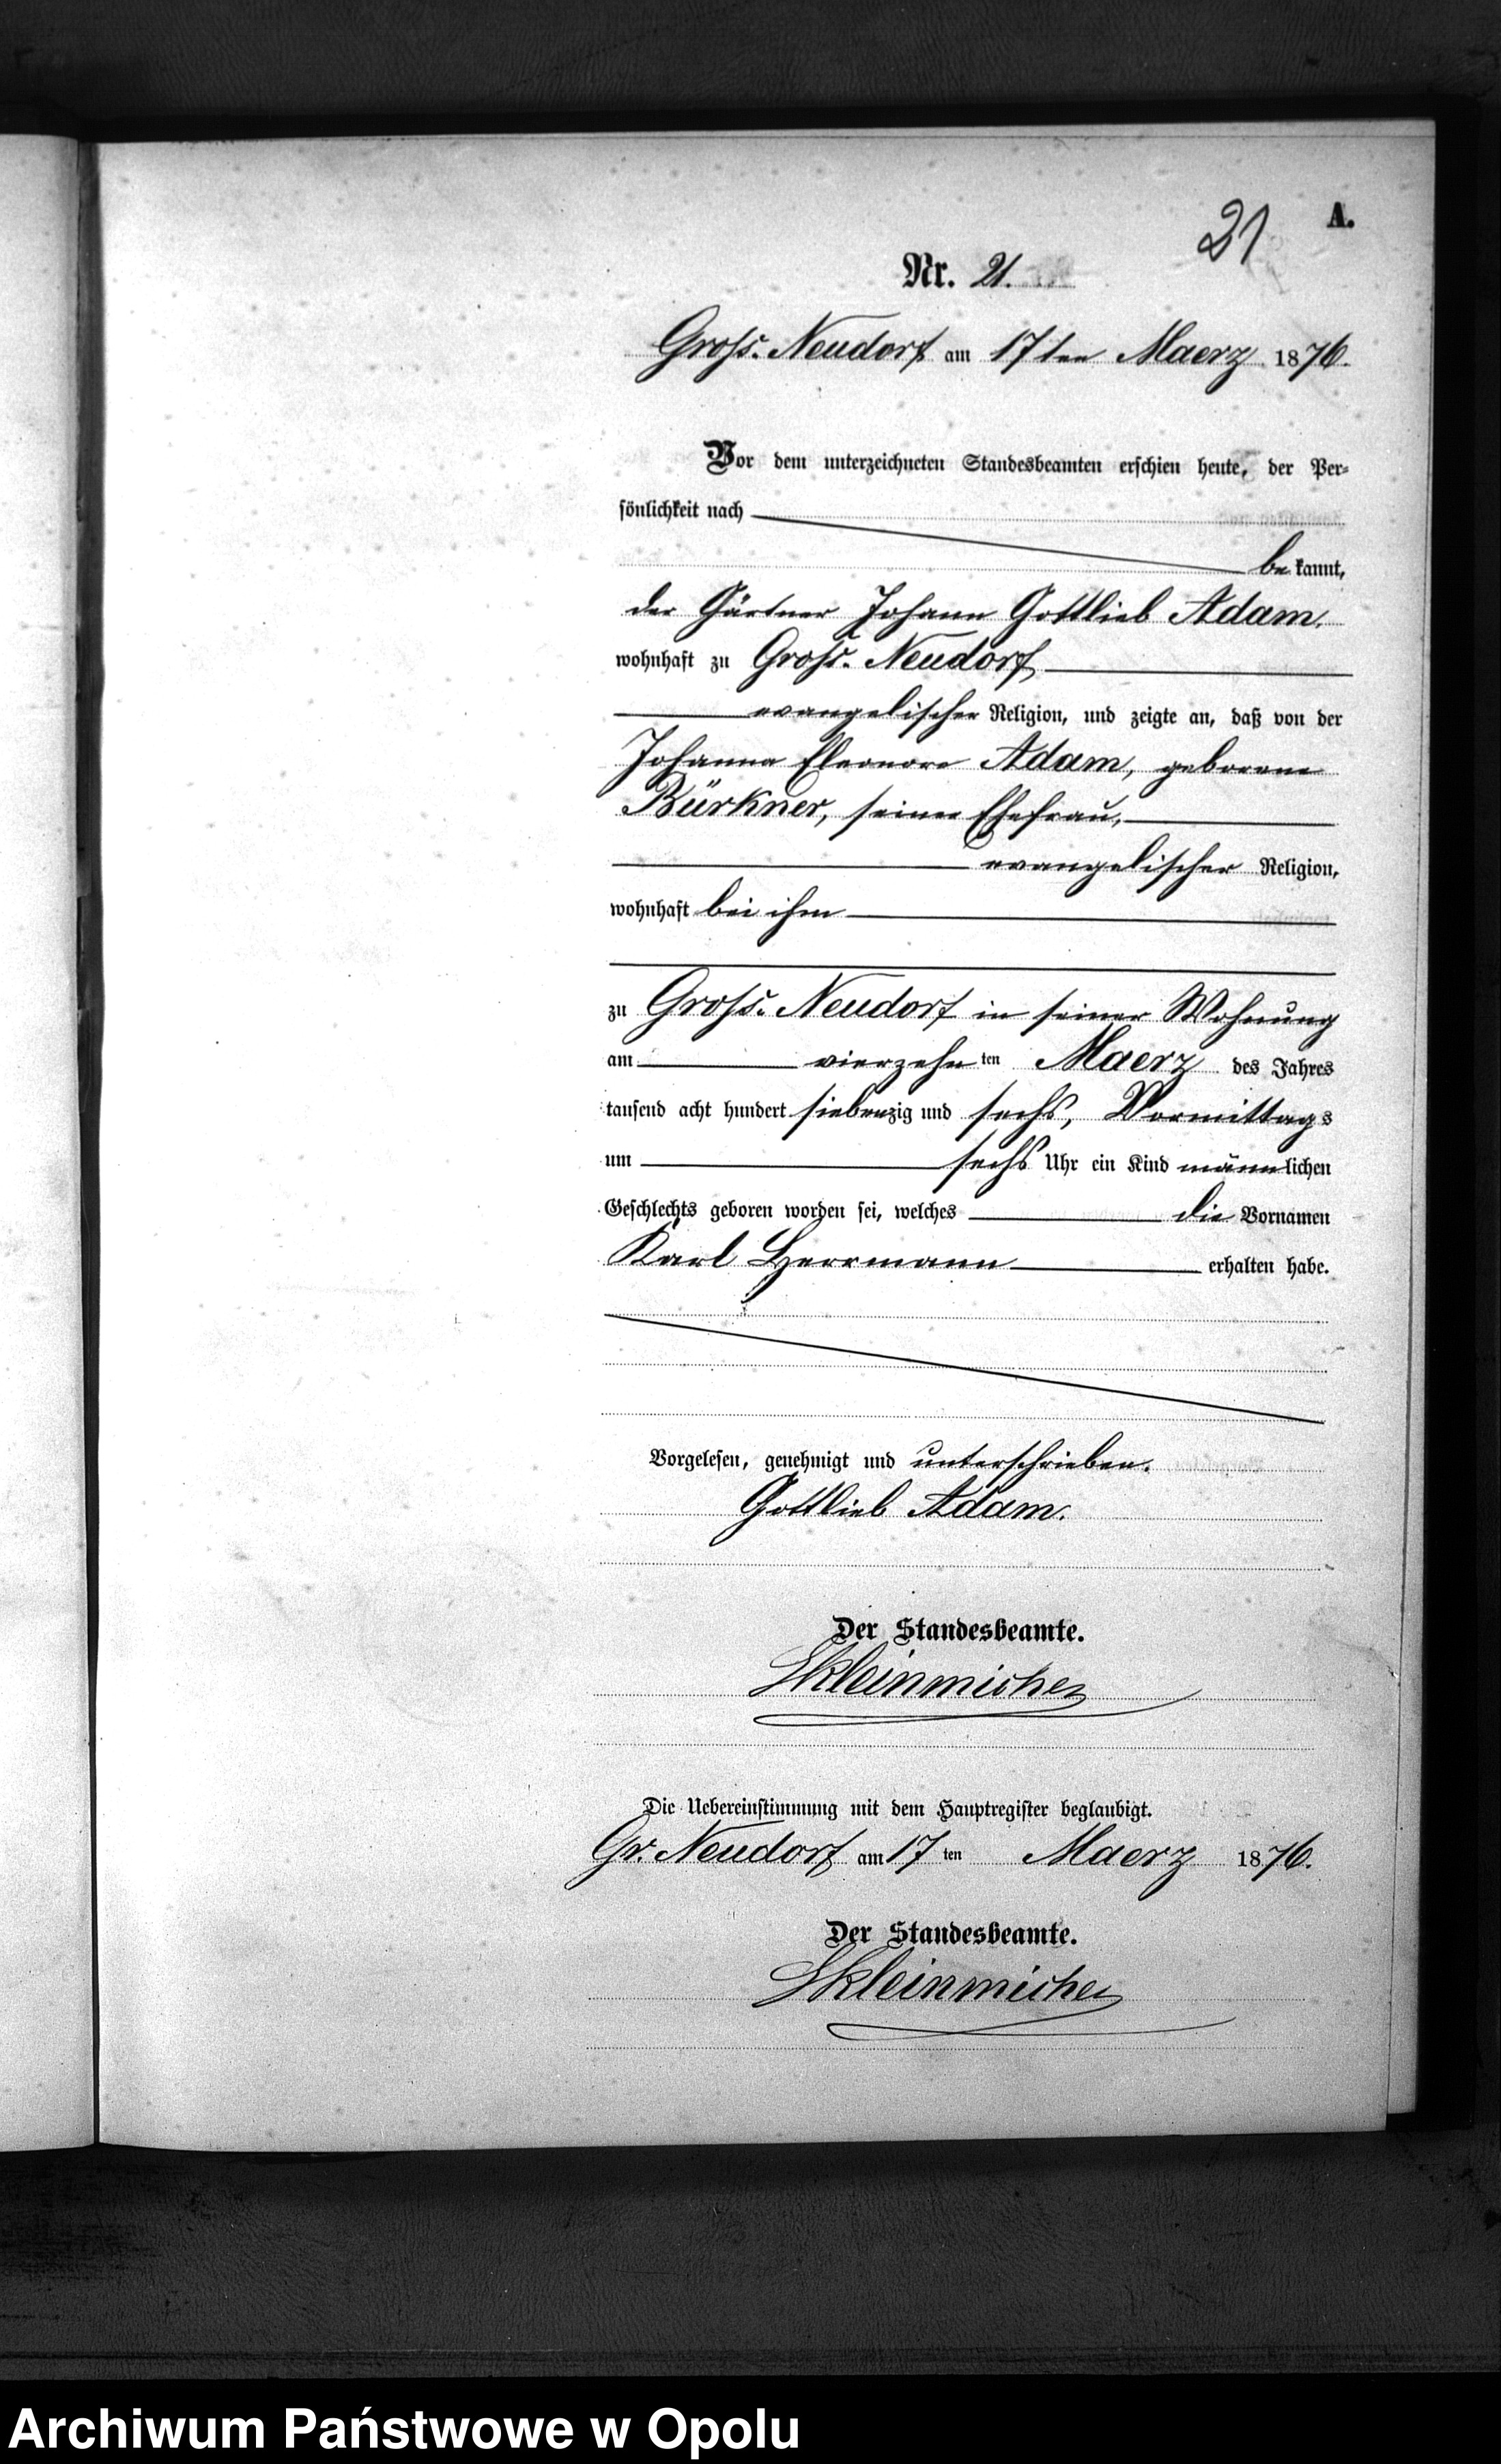 21 A.
Nr. 21.
Gross-Neudorf am 17ten Maerz 1876.
Vor dem unterzeichneten Standesbeamten erschien heute, der Per-
sönlichkeit nach
bekannt,
der Gärtner Johann Gottlieb Adam,
wohnhaft zu Gross-Neudorf
evangelischer Religion, und zeigte an, daß von der
Johanna Eleonore Adam, geborene
Bürkner, seiner Ehefrau,
evangelischer Religion,
wohnhaft bei ihm
zu Gross-Neudorf in seiner Wohnung
am vierzehnten Maerz des Jahres
tausend acht hundert siebenzig und sechs, Vormittags
um sechs Uhr ein Kind männlichen
Geschlechts geboren worden sei, welches die Vornamen
Karl Herrmann erhalten habe.
Vorgelesen, genehmigt und unterschrieben.
Gottlieb Adam.
Der Standesbeamte.
Kleinmichel
Die Uebereinstimmung mit dem Hauptregister beglaubigt.
Gr. Neudorf am 17ten Maerz 1876.
Der Standesbeamte.
Kleinmichel
Archiwum Państwowe w Opolu